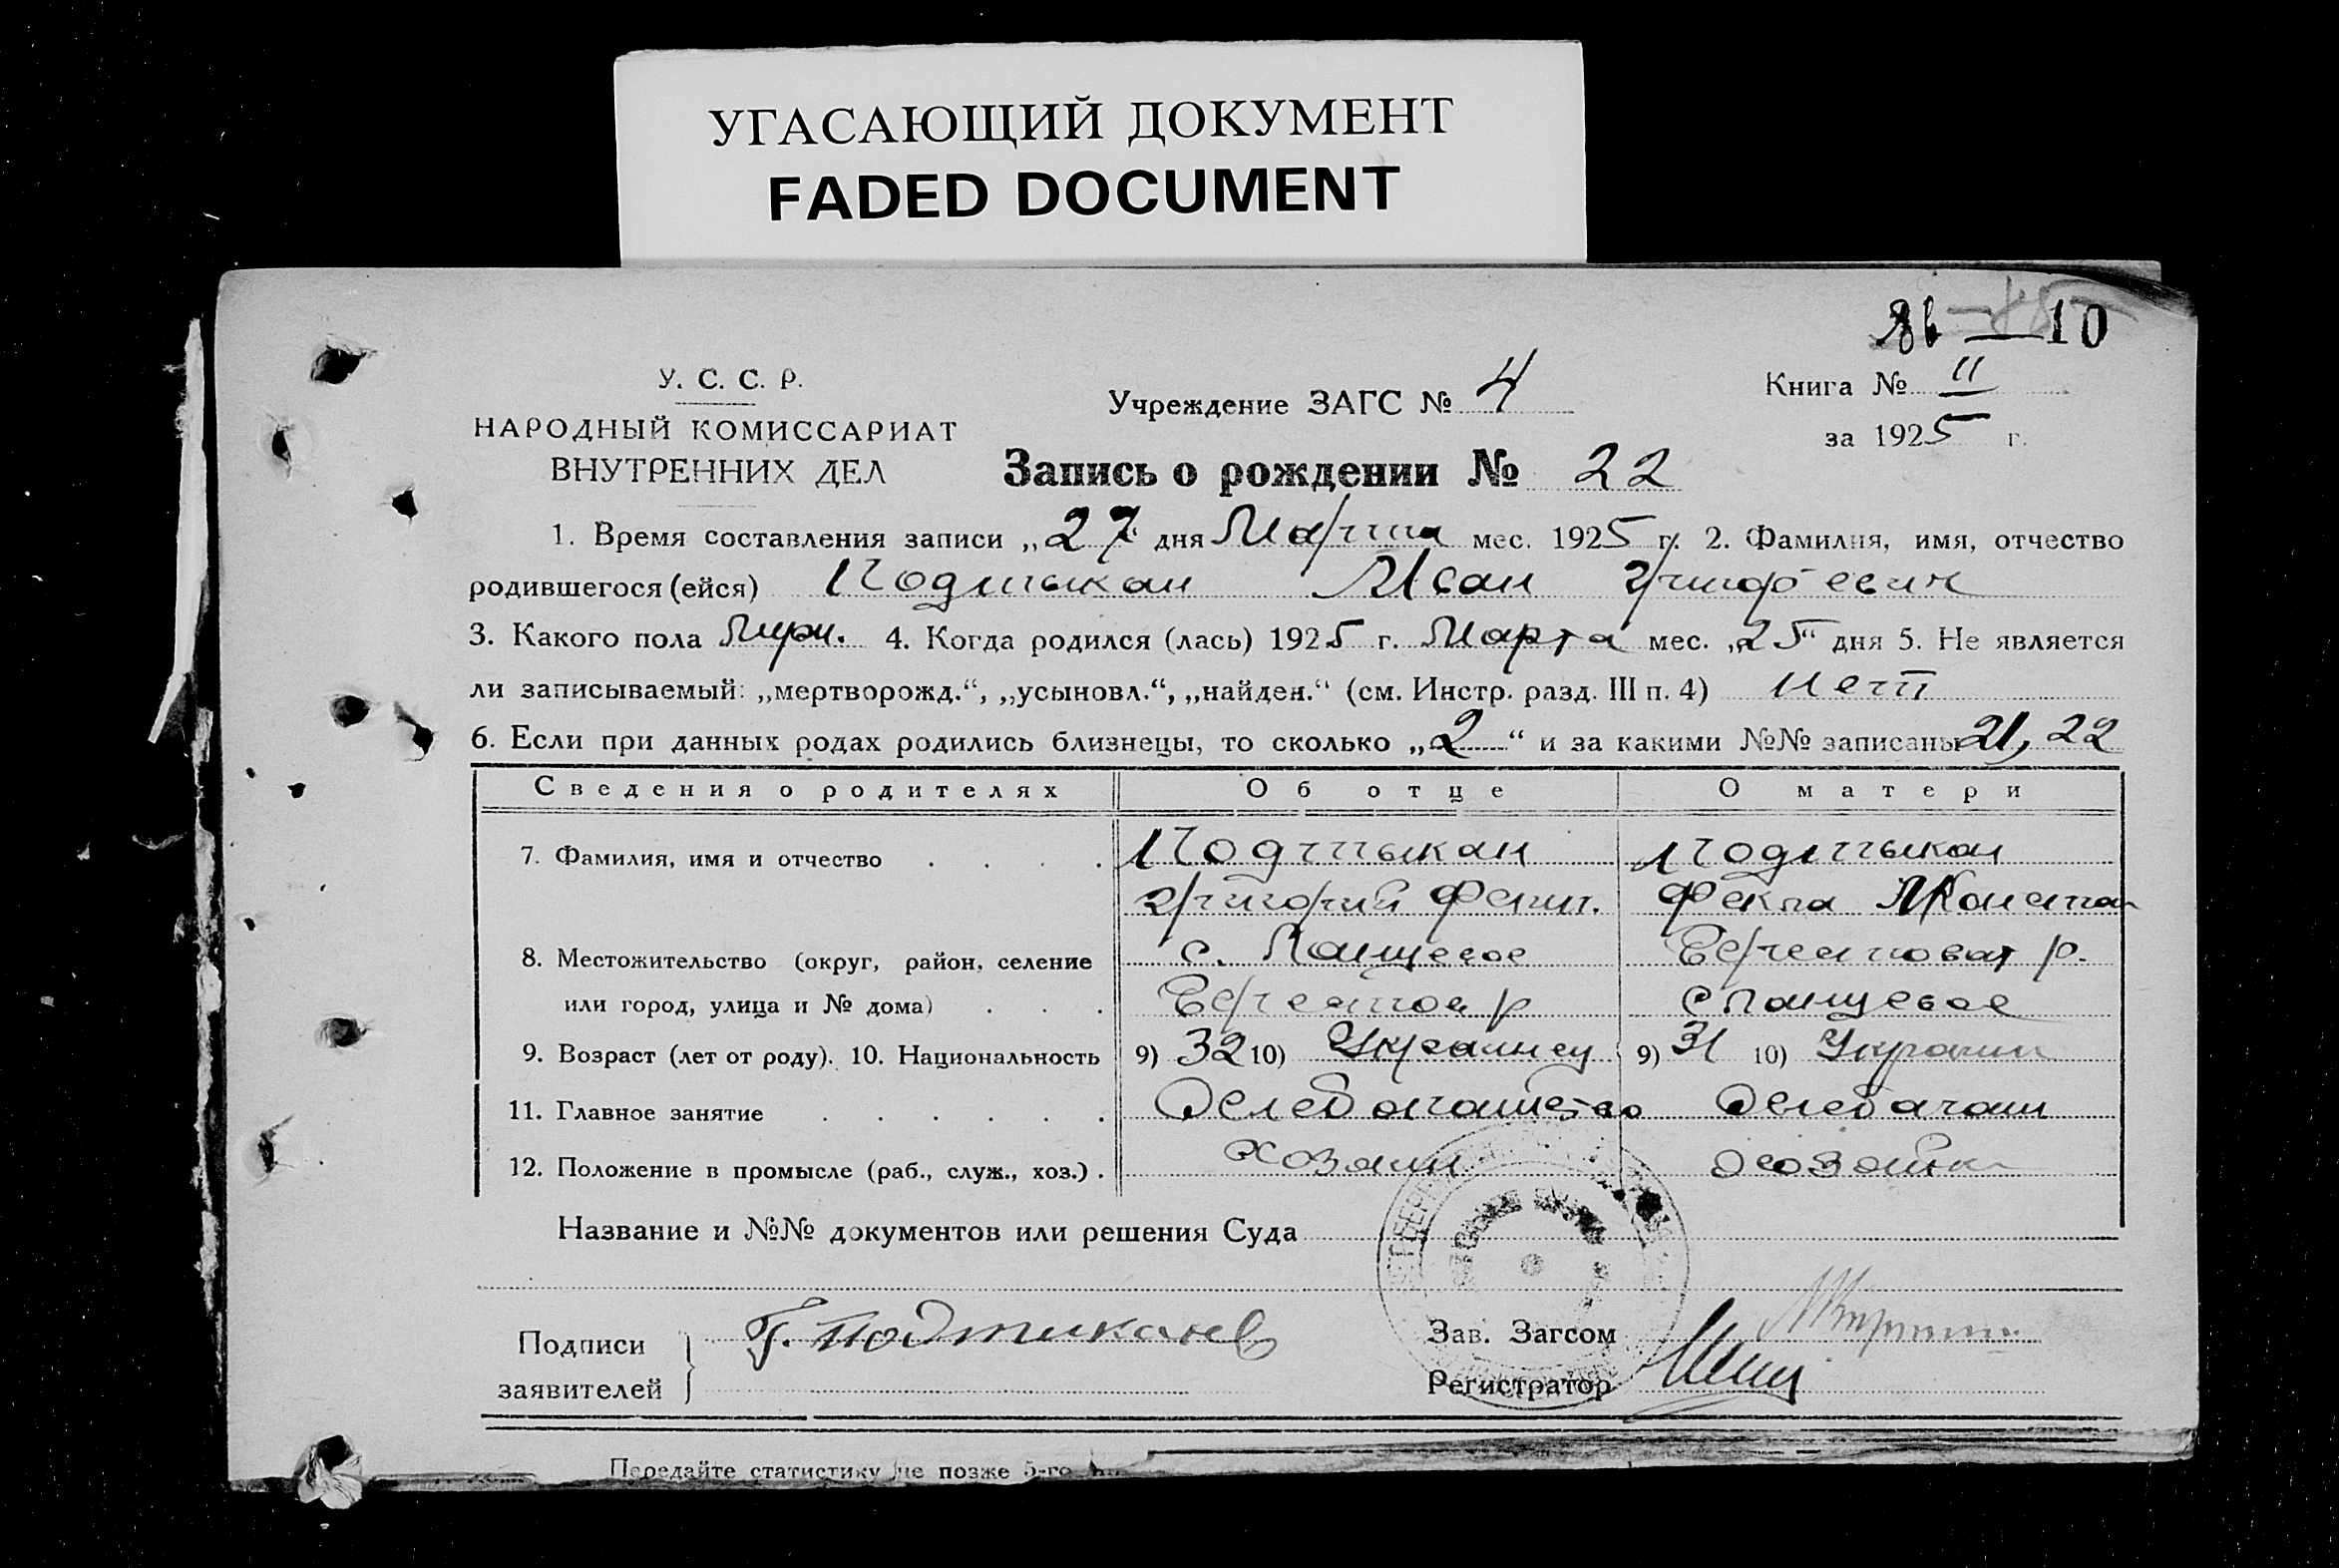 УГАСАЮЩИЙ ДОКУМЕНТ
FADED DOCUMENT
10
У. С. С. Р.
НАРОДНЫЙ КОМИССАРИАТ
ВНУТРЕННИХ ДЕЛ
Учреждение ЗАГС № 4
Книга № II
за 1925 г.
Запись о рождении № 22
1. Время составления записи „27“ дня Марта мес. 1925 г. 2. Фамилия, имя, отчество
родившегося (ейся) Подтыкан Иван Григорьевич
3. Какого пола Муж. 4. Когда родился (лась) 1925 г. Марта мес. „25“ дня 5. Не является
ли записываемый: „мертворожд.“, „усыновл.“, „найден.“ (см. Инстр. разд. III п. 4) Нет
6. Если при данных родах родились близнецы, то сколько „2“ и за какими №№ записаны 21, 22
Сведения о родителях Об отце О матери
7. Фамилия, имя и отчество . . . . Подтыкан Подтыкан
Григорий Фекла
8. Местожительство (округ, район, селение с. р.
или город, улица и № дома) . . . р
9. Возраст (лет от роду). 10. Национальность 9) 32 10) Украинец 9) 31 10) Украин
11. Главное занятие . . . . . . Хлебопашество Хлебопаш
12. Положение в промысле (раб., служ., хоз.) . Хозяин Хозяйка
Название и №№ документов или решения Суда
Подписи заявителей Г. Подтиканев
Зав. Загсом
Регистратор
Передайте статистику не позже 5-го